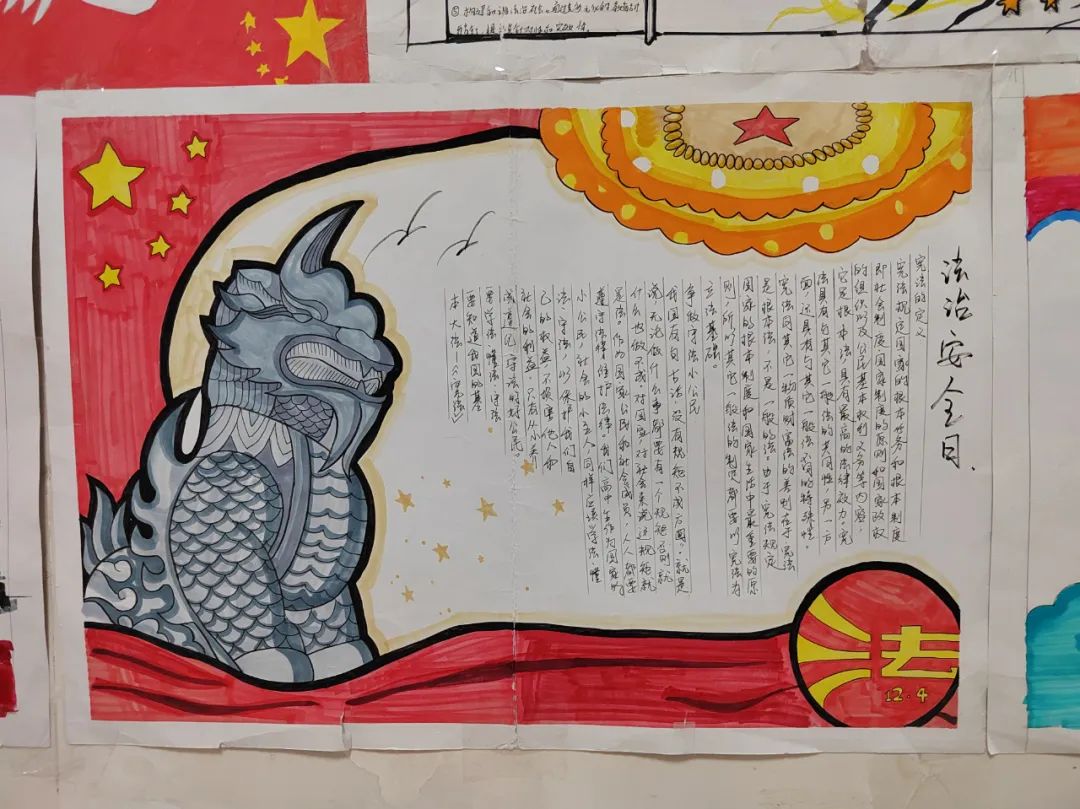 法治安全日
宪法的定义
宪法规定国家的根本任务和根本制度
即社会制度国家制度的原则和国家政权
的组织以及公民基本权利义务等内容,
它是根本法具有最高的法律效力。宪
法具有与其它一般法的共同性,另一方
面,还具有与其它一般法不同的特殊性。
宪法同其它一物质财富法的类别在于宪法
是根本法,不是一般的法。由于宪法规定
国家的根本制度和国家生活中最重要的原
则,所以其它一般法的制定都要以宪法为
立法基础。
争做守法小公民
我国有句古话,没有规矩不成方圆。就是
说无论做什么事都要有一个规矩否则就
什么也做不成对国家,对社会来说这规矩就
是法。作为国家公民的社会成员,人人都要
遵守法律维护法律。我们高中生作为国家的
小公民,社会的小主人,同样应该学法、懂
法、守法,以保护我们自
己的权益不损害他人和
社会的利益,只有从小
成遵纪守法的好公民
要学法、懂法、守法
要知道我国的基
本大法《宪法》
法
12.4